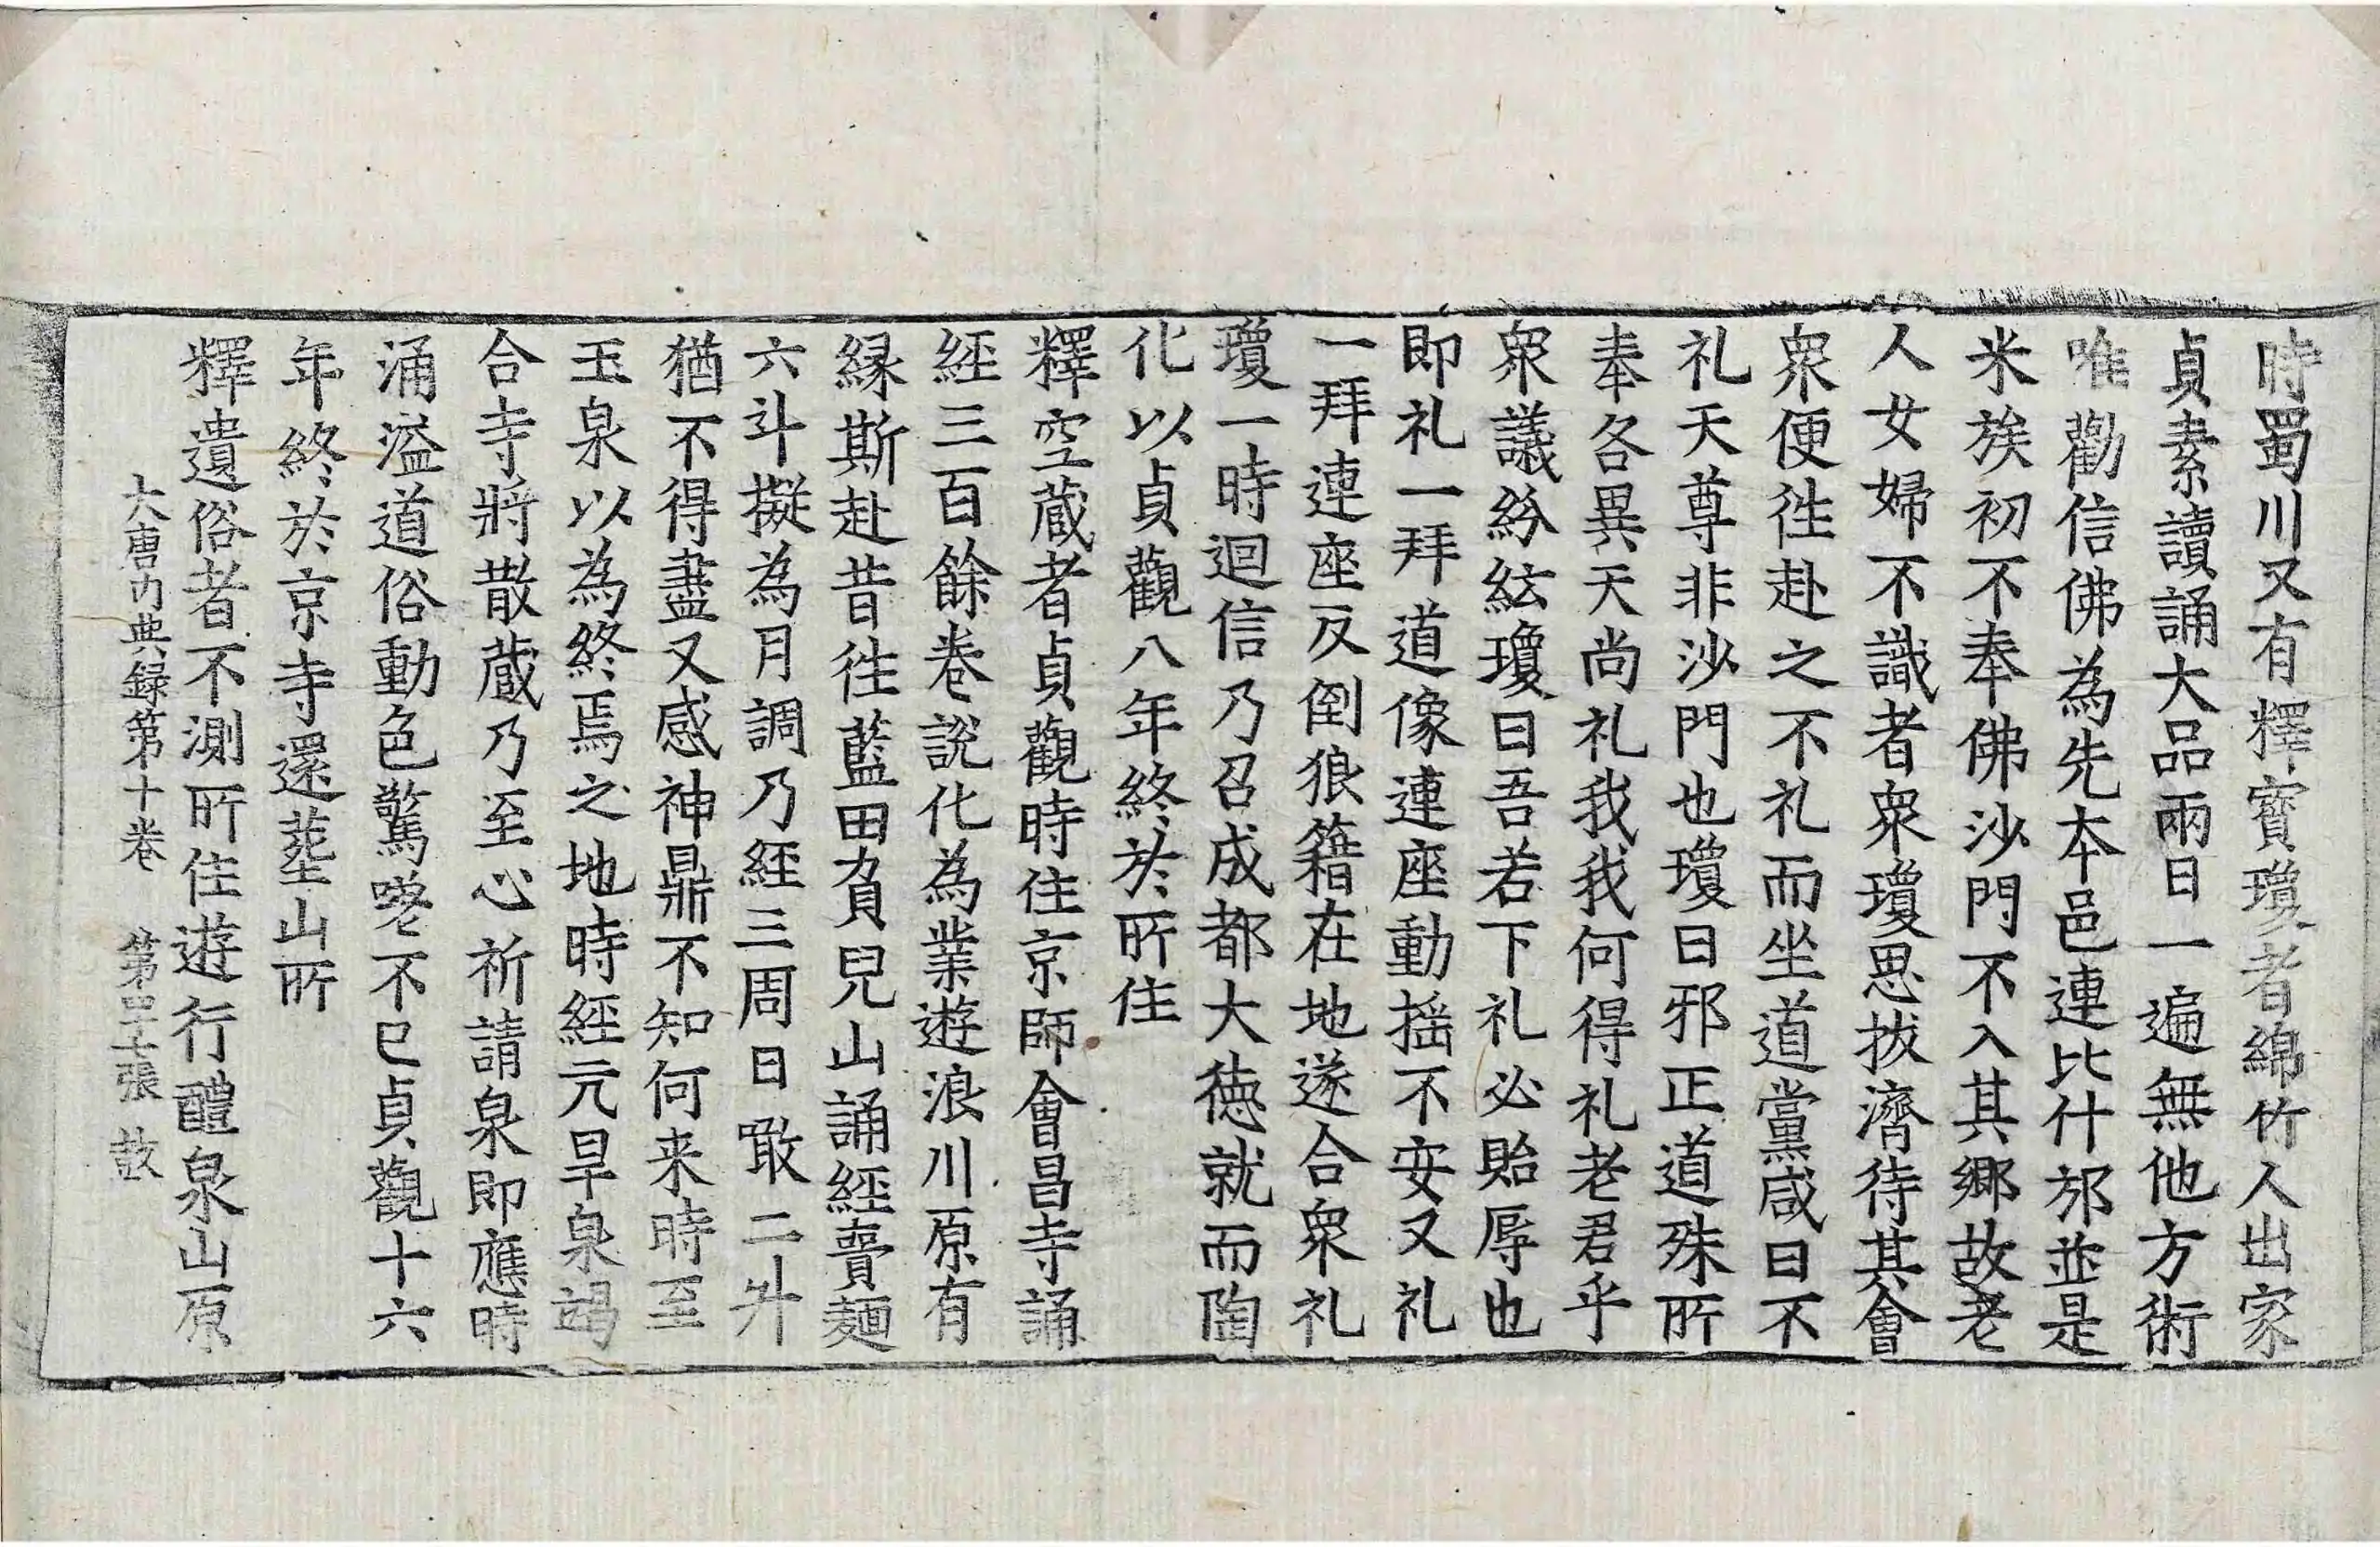 時蜀川又有釋寳瓊者綿竹人出家
貞素讀誦大品兩日一遍無他方術
唯勸信佛為先本邑連比什邡並是
米族初不奉佛沙門不入其鄉故老
人女婦不識者衆瓊思拔濟待其會
衆便徃赴之不礼而坐道黨咸曰不
礼天尊非沙門也瓊曰邪正道殊所
奉各異天尚礼我我何得礼老君乎
衆議紛紜瓊曰吾若下礼必貽辱也
即礼一拜道像連座動揺不安又礼
一拜連座反倒狼籍在地遂合衆礼
瓊一時迴信乃召成都大德就而陶
化以貞觀八年終於所住
釋空蔵者貞觀時住京師會昌寺誦
經三百餘卷説化為業遊浪川原有
縁斯赴昔徃藍田負兒山誦經賷麺
六斗擬為月調乃經三周日噉二升
猶不得盡又感神鼎不知何来時至
玉泉以為終焉之地時經亢旱泉竭
合寺將散蔵乃至心祈請泉即應時
涌溢道俗動色驚嗟不已貞觀十六
年終於京寺還葬山所
釋遺俗者不測所住遊行醴泉山原
大唐内典録第十卷　第四十七張　敼